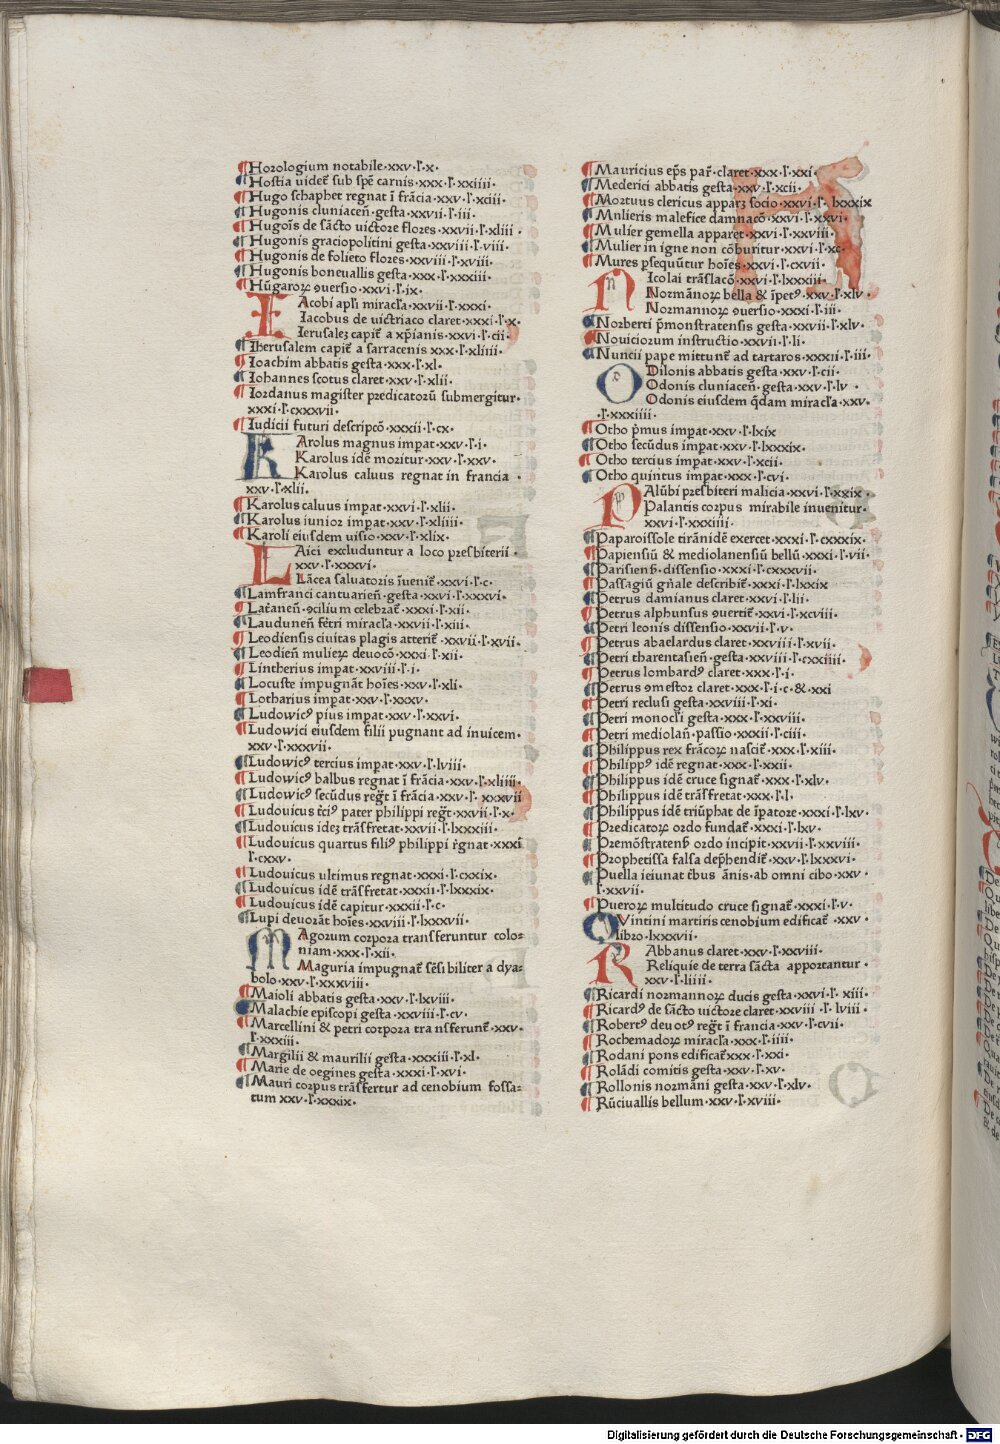 ¶Horologium notabile·xxv·l·x·
¶Hostia uidet᷑ sub sp̄e carnis·xxx·l·xxiiii·
¶Hugo schaphet regnat ī frācia·xxv·l·xciii·
¶Hugonis cluniaceñ·gesta·xxvii·l·iii·
¶Hugoīs de sācto uictore flores·xxvii·l·xliii·
¶Hugonis graciopolitini gesta·xxviii·l·viii·
¶Hugonis de folieto flores·xxviii·l·xviii·
¶Hugonis boneuallis gesta·xxx·l·xxxiii·
¶Hūgaroꝝ ꝯuersio·xxvi·l·ix·
IAcobi apl'i miracl'a·xxvii·l·xxxi·
Iacobus de uictriaco claret·xxxi·l·x·
Ierusalez capit᷑ a xp̄ianis·xxvi·l·cii·
¶Iherusalem capit᷑ a sarracenis xxx·l·xliiii·
¶Ioachim abbatis gesta·xxx·l·xl·
¶Iohannes scotus claret·xxv·l·xlii·
¶Iordanus magister predicatorū submergitur·
xxxi·l·cxxxvii·
¶Iudicii futuri descripcō·xxxii·l·cx·
KArolus magnus imp̄at·xxv·l·i·
Karolus idē moritur·xxv·l·xxv·
Karolus caluus regnat in francia·
xxv·l·xlii·
¶Karolus caluus imp̄at·xxv·l·xlii·
¶Karolus iunior imp̄at·xxv·l·xliiii·
¶Karoli eiusdem uisio·xxv·l·xlix·
LAici excluduntur a loco presbiterii·
xxv·l·xxxvi·
Lācea saluatoris īuenit᷑·xxvi·l·c·
¶Lamfranci cantuarieñ·gesta·xxvi·l·xxxvi·
¶Lat̄aneñ·ꝯcilium celebrat᷑·xxxi·l·xii·
¶Lauduneñ fēt̄ri miracl'a·xxvii·l·xiii·
¶Leodiensis ciuitas plagis atterit᷑·xxvii·l·xvii·
¶Leodieñ mulieꝝ deuocō·xxxi·l·xii·
¶Lintherius imp̄at·xxviii·l·i·
¶Locuste impugnāt hoīes·xxv·l·xli·
¶Lotharius imp̄at·xxv·l·xxxv·
¶Ludowicꝰ pius imp̄at·xxv·l·xxvi·
¶Ludowici eiusdem filii pugnant ad inuicem·
xxv·l·xxxvii·
¶Ludowicꝰ tercius imp̄at·xxv·l·lviii·
¶Ludowicꝰ balbus regnat ī frācia·xxv·l·xliiii·
¶Ludowicꝰ secūdus reg̃t ī frācia·xxv·l·xxxvii
¶Ludouicus t̄ciꝰ pater philippi reg̃t·xxvii·l·x·
¶Ludouicus idez trāsfretat·xxvii·l·lxxxiii·
¶Ludouicus quartus filiꝰ philippi r̄gnat·xxxi
l·cxxv·
¶Ludouicus ultimus regnat·xxxi·l·cxxix·
¶Ludouicus idē trāsfretat·xxxii·l·lxxxix·
¶Ludouicus idē capitur·xxxii·l·c·
¶Lupi deuorāt hoīes·xxviii·l·lxxxvii·
MAgorum corpora transferuntur colo⸗
niam·xxx·l·xii·
Maguria impugnat᷑ sēsibiliter a dya⸗
bolo·xxv·l·xxxviii·
¶Maioli abbatis gesta·xxv·l·lxviii·
¶Malachie episcopi gesta·xxviii·l·cv·
¶Marcellini & petri corpora tra nsferunt᷑·xxv·
l·xxxiii·
¶Margilii & maurilii gesta·xxxiii·l·xl·
¶Marie de oegines gesta·xxxi·l·xvi·
¶Mauri corpus trāsfertur ad cenobium fossa⸗
tum xxv·l·xxxix·
¶Mauricius ep̄s par̄·claret·xxx·l·xxi·
¶Mederici abbatis gesta·xxv·l·xcii·
¶Mortuus clericus apparꝫ socio·xxvi·l·lxxxix
¶Mnlieris malefice damnacō·xxvi·l·xxvi·
¶Mulier gemella apparet·xxvi·l·xxviii·
¶Mulier in igne non cōburitur·xxvi·l·xc·
¶Mures p̄sequūtur hoīes·xxvi·l·cxvii·
NIcolai trāslacō·xxvi·l·lxxxiii·
Normānoꝝ bella & īpetꝰ·xxv·l·xlv·
Normannoꝝ ꝯuersio·xxxi·l·iii·
¶Norberti p̄monstratensis gesta·xxvii·l·xlv·
¶Nouiciorum instructio·xxvii·l·li·
¶Nuncii pape mittunt᷑ ad tartaros·xxxii·l·iii·
ODilonis abbatis gesta·xxv·l·cii·
Odonis cluniaceñ·gesta·xxv·l·lv·
Odonis eiusdem q̄dam miracl'a·xxv·
·l·xxxiiii·
¶Otho p̄mus imp̄at·xxv·l·lxix
¶Otho secūdus imp̄at·xxv·l·lxxxix·
¶Otho tercius imp̄at·xxv·l·xcii·
¶Otho quintus imp̄at·xxx·l·cvi·
PAlūbi presbiteri malicia·xxvi·l·xxix·
Palantis corpus mirabile inuenitur·
xxvi·l·xxxiiii·
¶Paparoissole tirānidē exercet·xxxi·l·cxxxix·
¶Papiensiū & mediolanensiū bellū·xxxi·l·vii·
¶Parisienß·dissensio·xxxi·l·cxxxvii·
¶Passagiū gn̄ale describit᷑·xxxi·l·lxxix
¶Petrus damianus claret·xxvi·l·lii·
¶Petrus alphunsus ꝯuertit᷑·xxvi·l·xcviii·
¶Petri leonis dissensio·xxvii·l·v·
¶Petrus abaelardus claret·xxviii·l·xvii·
¶Petri tharentasieñ·gesta·xxviii·l·cxxiiii·
¶Petrus lombardꝰ claret·xxx·l·i·
¶Petrus ꝯmestor claret·xxx·l·i·c·& xxi
¶Petri reclusi gesta·xxviii·l·xi·
¶Petri monocl'i gesta·xxx·l·xxviii·
¶Petri mediolañ·passio·xxxii·l·ciii·
¶Philippus rex frācoꝝ nascit᷑·xxx·l·xiii·
¶Philippꝰ idē regnat·xxx·l·xxii·
¶Philippus idē cruce signat᷑·xxx·l·xlv·
¶Philippus idē trāsfretat·xxx·l·l·
¶Philippus idē triūphat de īp̄atore·xxxi·l·lxv·
¶Predicatoꝝ ordo fundat᷑·xxxi·l·lxv·
¶Premōstratenß ordo incipit·xxvii·l·xxviii·
¶Prophetissa falsa dep̄hendit᷑·xxv·l·lxxxvi·
¶Puella ieiunat t̄bus ānis·ab omni cibo·xxv·
l·xxvii·
¶Pueroꝝ multitudo cruce signat᷑·xxxi·l·v·
QVintini martiris cenobium edificat᷑·xxv·
libro·lxxxvii·
RAbbanus claret·xxv·l·xxviii·
Reliquie de terra sācta apportantur·
xxv·l·iiii·
¶Ricardi normannoꝝ ducis gesta·xxvi·l·xiii·
¶Ricardꝰ de sācto uictore claret·xxviii·l·lviii·
¶Robertꝰ deuotꝰ reg̃t ī francia·xxv·l·cvii·
¶Rochemadoꝝ miracl'a·xxx·l·iiii·
¶Rodani pons edificat᷑xxx·l·xxi·
¶Rolādi comitis gesta·xxv·l·xv·
¶Rollonis normāni gesta·xxv·l·xlv·
¶Rūciuallis bellum·xxv·l·xviii·
Digitalisierung gefördert durch die Deutsche Forschungsgemeinschaft - DFG